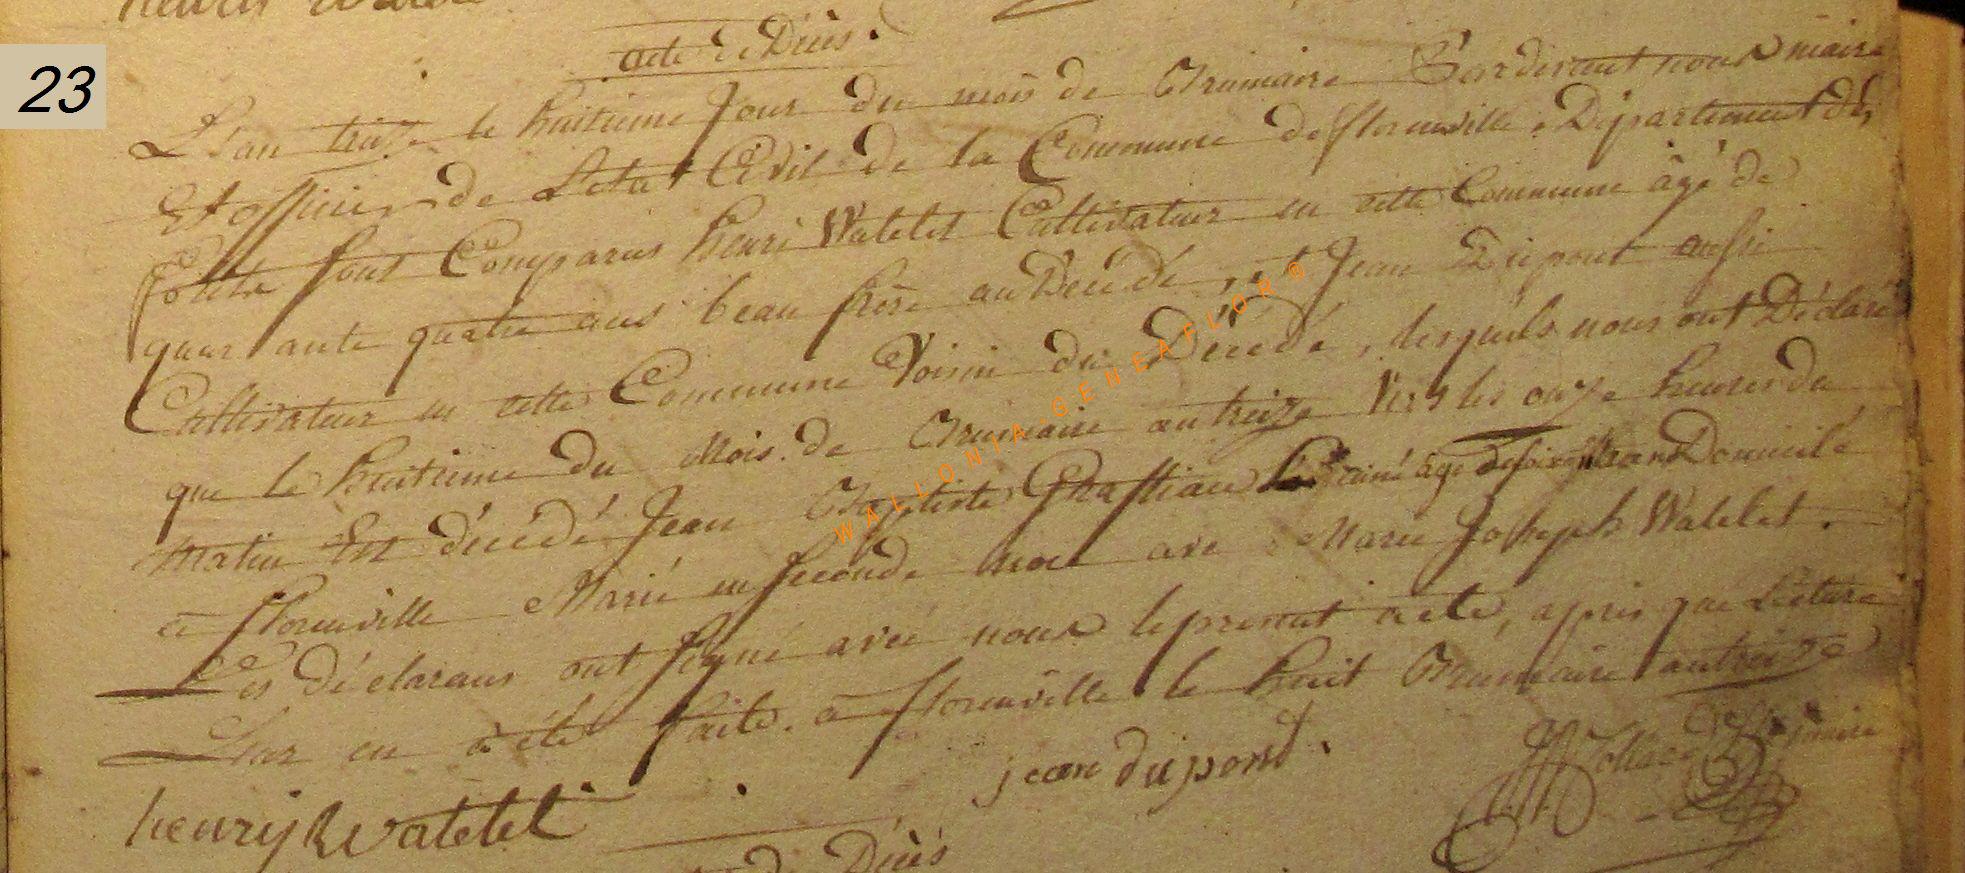 henri Watelet
23
acte de Décès.
L'an treize le huitieme Jour du mois de Brumaire Pardevant nous maire
Et officier de L'etat Civil de la Commune de florenville, Département des
forêts sont Comparus henri Watelet Cultivateur en cette Commune âgé de
quarante quatre ans beau frère au Décédé, et Jean Dupont aussi
Cultivateur en cette Commune Voisin du Décédé, lesquels nous ont Déclaré
que le huitieme du Mois de Brumaire an treize Vers les onze heures du
matin Est décédé Jean Baptiste L'ainé âgé de soixante ans Domicilé
à florenville Marié en seconde noce avec Marie Joseph Watelet.
Les déclarans ont signé avec nous le present acte, après que Lecture
Leur en a été faite. à florenville le huit Brumaire an treize
henry Watelet
jean dupond.
maire
de Décès
WALLONIA-GENEAFLOR®